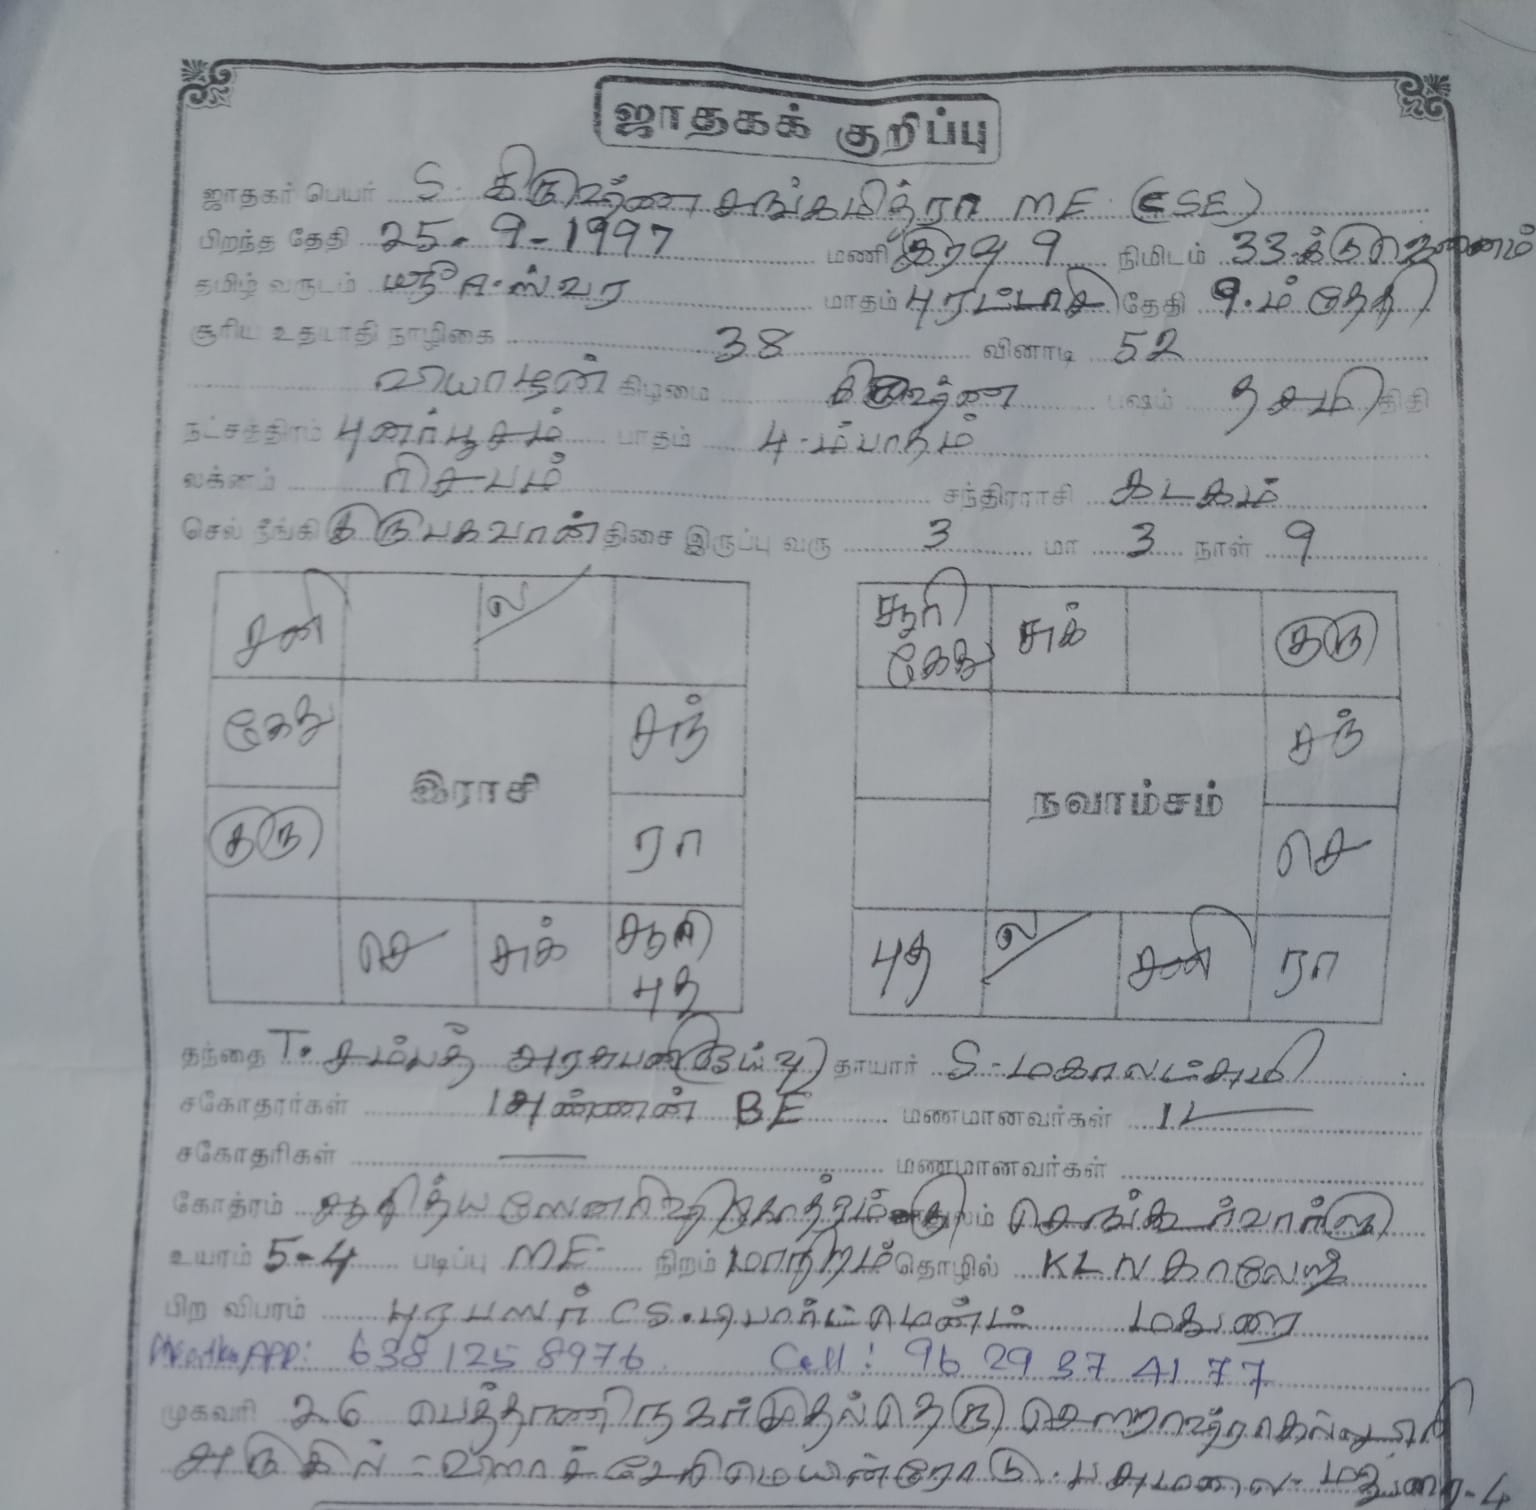 ஜாதகக் குறிப்பு
ஜாதகர் பெயர் S. கிருஷ்ண சங்கமித்ரா ME (CSE)
பிறந்த தேதி 25-9-1997 மணி இரவு 9 நிமிடம் 33-க்கு
தமிழ் வருடம் மாதம் புரட்டாசி தேதி 9.ம் தேதி
சூரிய உதயாதி நாழிகை 38 வினாடி 52
வியாழன் கிழமை கிருஷ்ண பஷம் தசமி திதி
நட்சத்திரம் புனர்பூசம் பாதம் 4-ம்பாதம்
லக்னம் ரிசபம் சந்திரராசி கடகம்
செல் நீங்கி குருபகவான் திசை இருப்பு வரு 3 மா 3 நாள் 9
சனி ல
கேது சந்
இராசி
குரு ரா
செ சுக் சூரி புத
சூரி கேது சுக் குரு
சந்
நவாம்சம்
செ
புத ல சனி ரா
தந்தை T. சம்பத் தாயார் S-மகாலட்சுமி
சகோதரர்கள் 1 அண்ணன் BE மணமானவர்கள் 1
சகோதரிகள் — மணமானவர்கள்
கோத்ரம்
உயரம் 5-4 படிப்பு ME நிறம் மாநிறம் தொழில் KLN காலேஜ்
பிற விபரம் CS. டிபார்ட்மெண்ட் மதுரை
WhatsApp: 6381258976 Cell: 9629374177
முகவரி 26 நகர் முதல் தெரு
அருகில் மெயின்ரோடு. பசுமலை- மதுரை-4